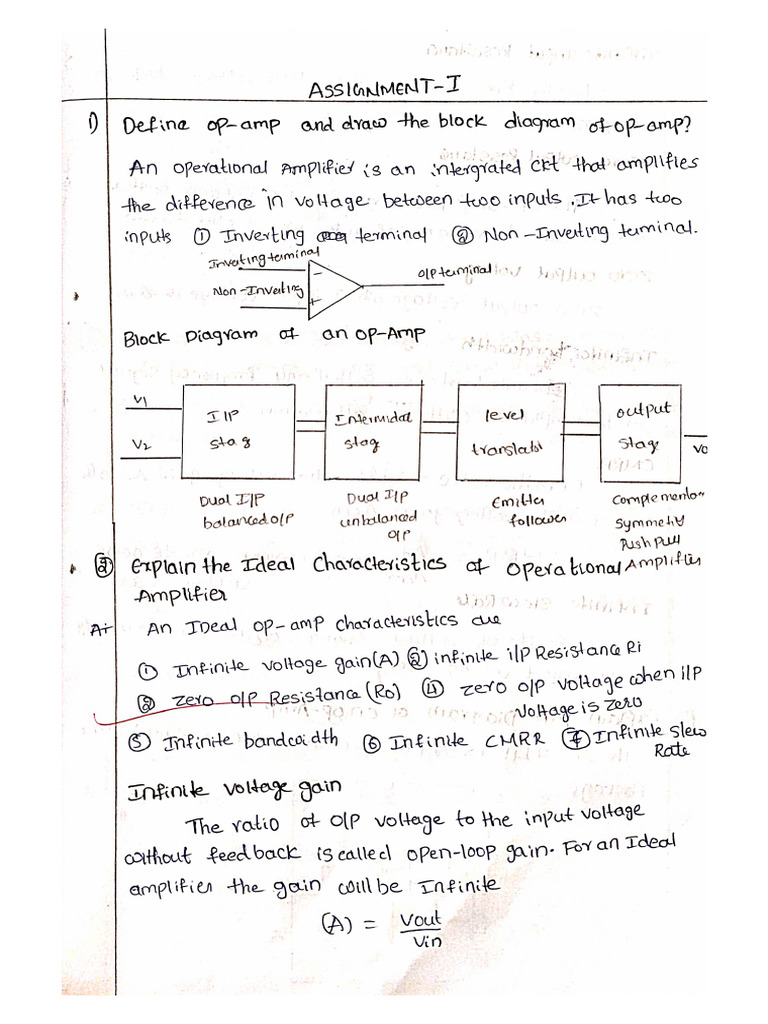 ASSIGNMENT-I
1) Define op-amp and draw the block diagram of op-amp?
An operational Amplifier is an intergrated CKT that amplifies
the difference in voltage between two inputs. It has two
inputs ① Inverting terminal ② Non-Inverting terminal.
Inverting terminal
O/P terminal
Non-Inverting
Block Diagram of an op-Amp
V1
V2
I/P
stag
Intermidat
stag
level
translato
output
stag
VO
Dual I/P
balanced O/P
Dual I/P
unbalanced
O/P
Emitter
follower
Complementor
symmetry
Push pull
Amplifier
② Explain the Ideal Characteristics of operational
Amplifier
A:- An Ideal op-amp characteristics are
① Infinite voltage gain(A) ② infinite i/p Resistance Ri
③ zero o/p Resistance (Ro) ④ zero o/p voltage when i/p
voltage is zero
⑤ Infinite bandwidth ⑥ Infinite CMRR ⑦ Infinite slew
Rate
Infinite voltage gain
The ratio of O/P voltage to the input voltage
without feedback is called open-loop gain. For an Ideal
amplifier the gain will be Infinite
(A) = Vout
Vin